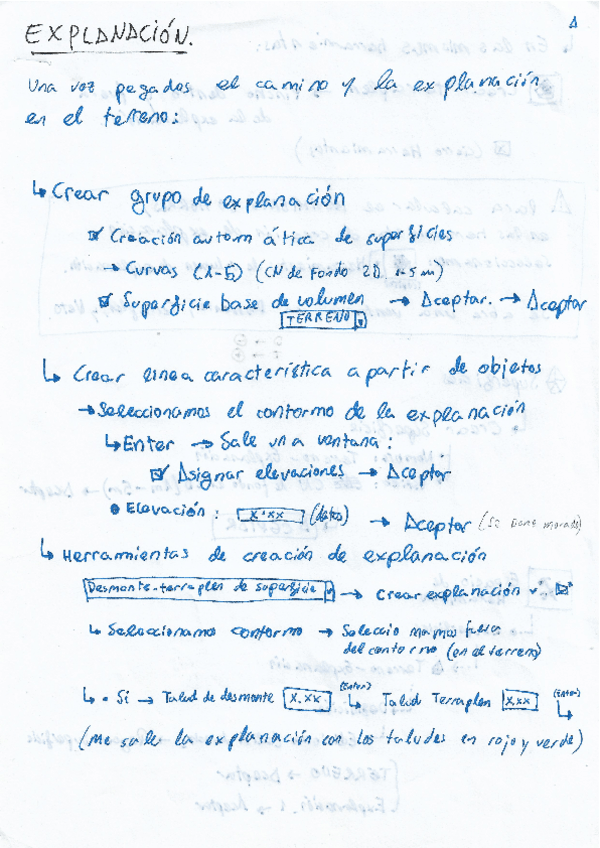 1
EXPLANACIÓN.
Una vez pegados el camino y la explanación
en el terreno:
↳ Crear grupo de explanación
☑ Creación automática de superficies
→ Curvas (1-5) (CN de Fondo 2D 1-5m)
☑ Superficie base de volumen → Aceptar. → Aceptar
TERRENO
↳ Crear línea característica a partir de objetos
→ Seleccionamos el contorno de la explanación
↳ Enter → Sale una ventana:
☑ Asignar elevaciones → Aceptar
• Elevación: X.XX (datos) → Aceptar (Se pone morado)
↳ Herramientas de creación de explanación
Desmonte-terraplen de superficie → Crear explanación
↳ Seleccionamo contorno → Seleccionamos fuera
del contorno (en el terreno)
↳ • Si → Talud de desmonte X.XX (Enter) ↳ Talud Terraplen X.XX (Enter) ↳
(Me sale la explanación con los taludes en rojo y verde)